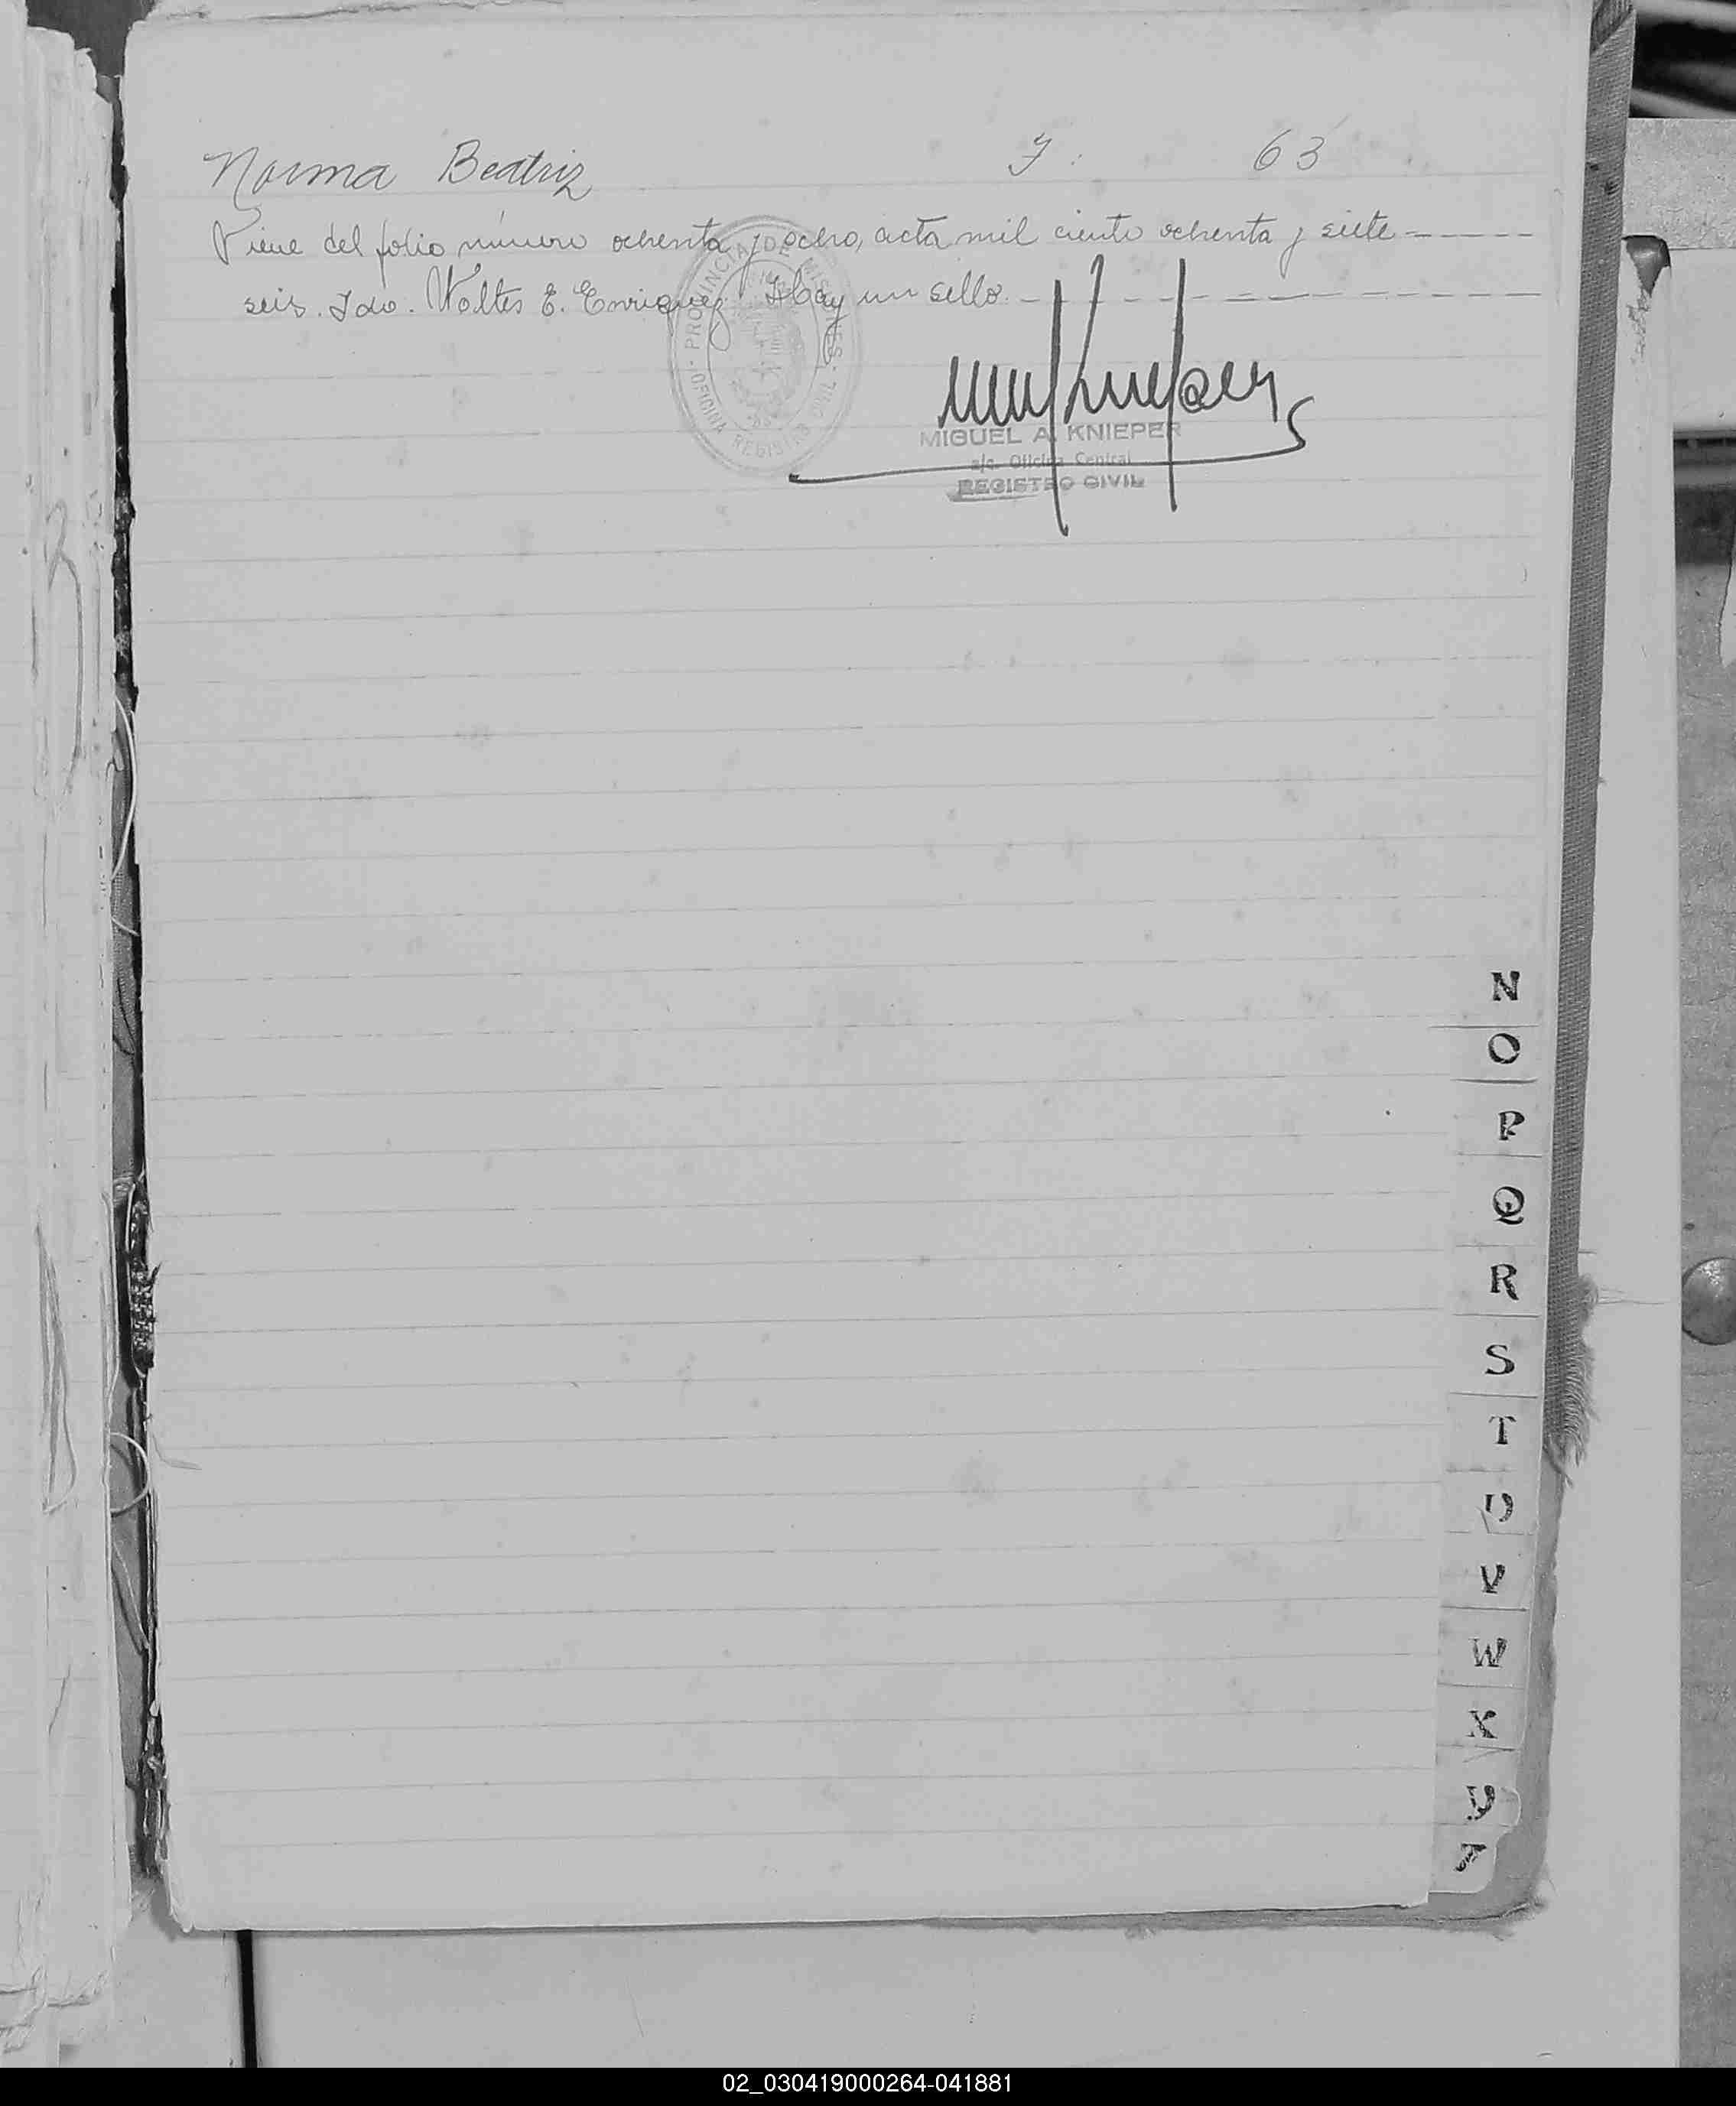 Norma Beatriz F: 63
Viene del folio número ochenta y ocho, acta mil ciento ochenta y siete
seis. Fdo. Walter E. Enriquez. Hay un sello.
PROVINCIA DE MISIONES
OFICINA REGISTRO CIVIL
MIGUEL A. KNIEPER
a/c. Oficina Central
REGISTRO CIVIL
N
O
P
Q
R
S
T
U
V
W
X
Y
Z
02_030419000264-041881